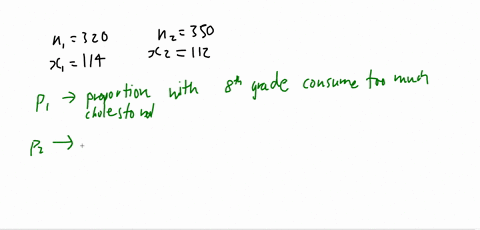 n₁ = 320 n₂ = 350
x₁ = 114 x₂ = 112
P₁ → proportion with 8th grade consume too much
cholestorol
P₂ →